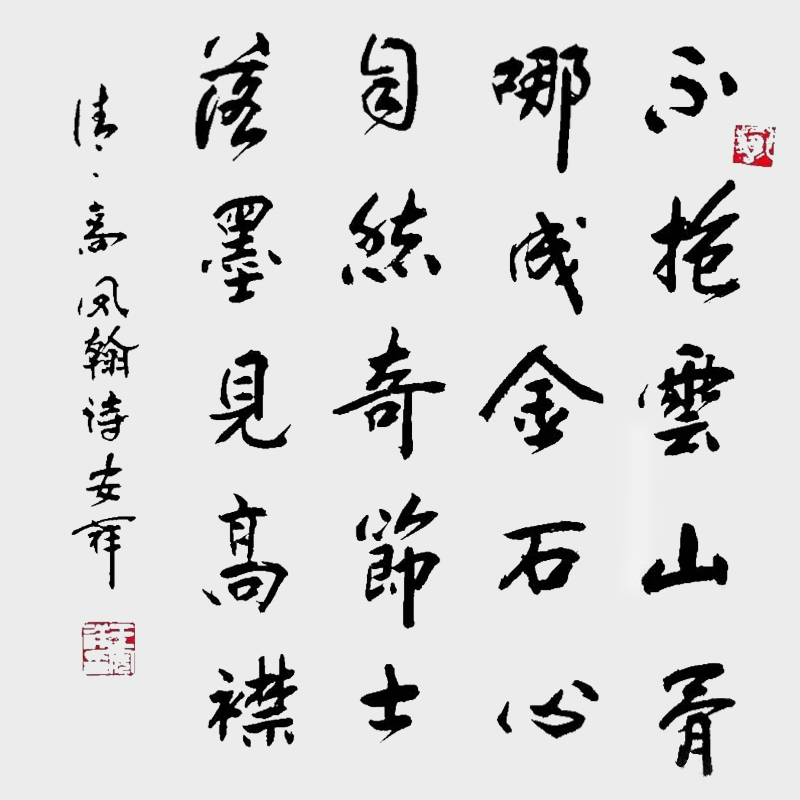 不抱雲山骨
哪成金石心
自然奇節士
落墨見高襟
清、高凤翰诗安祥